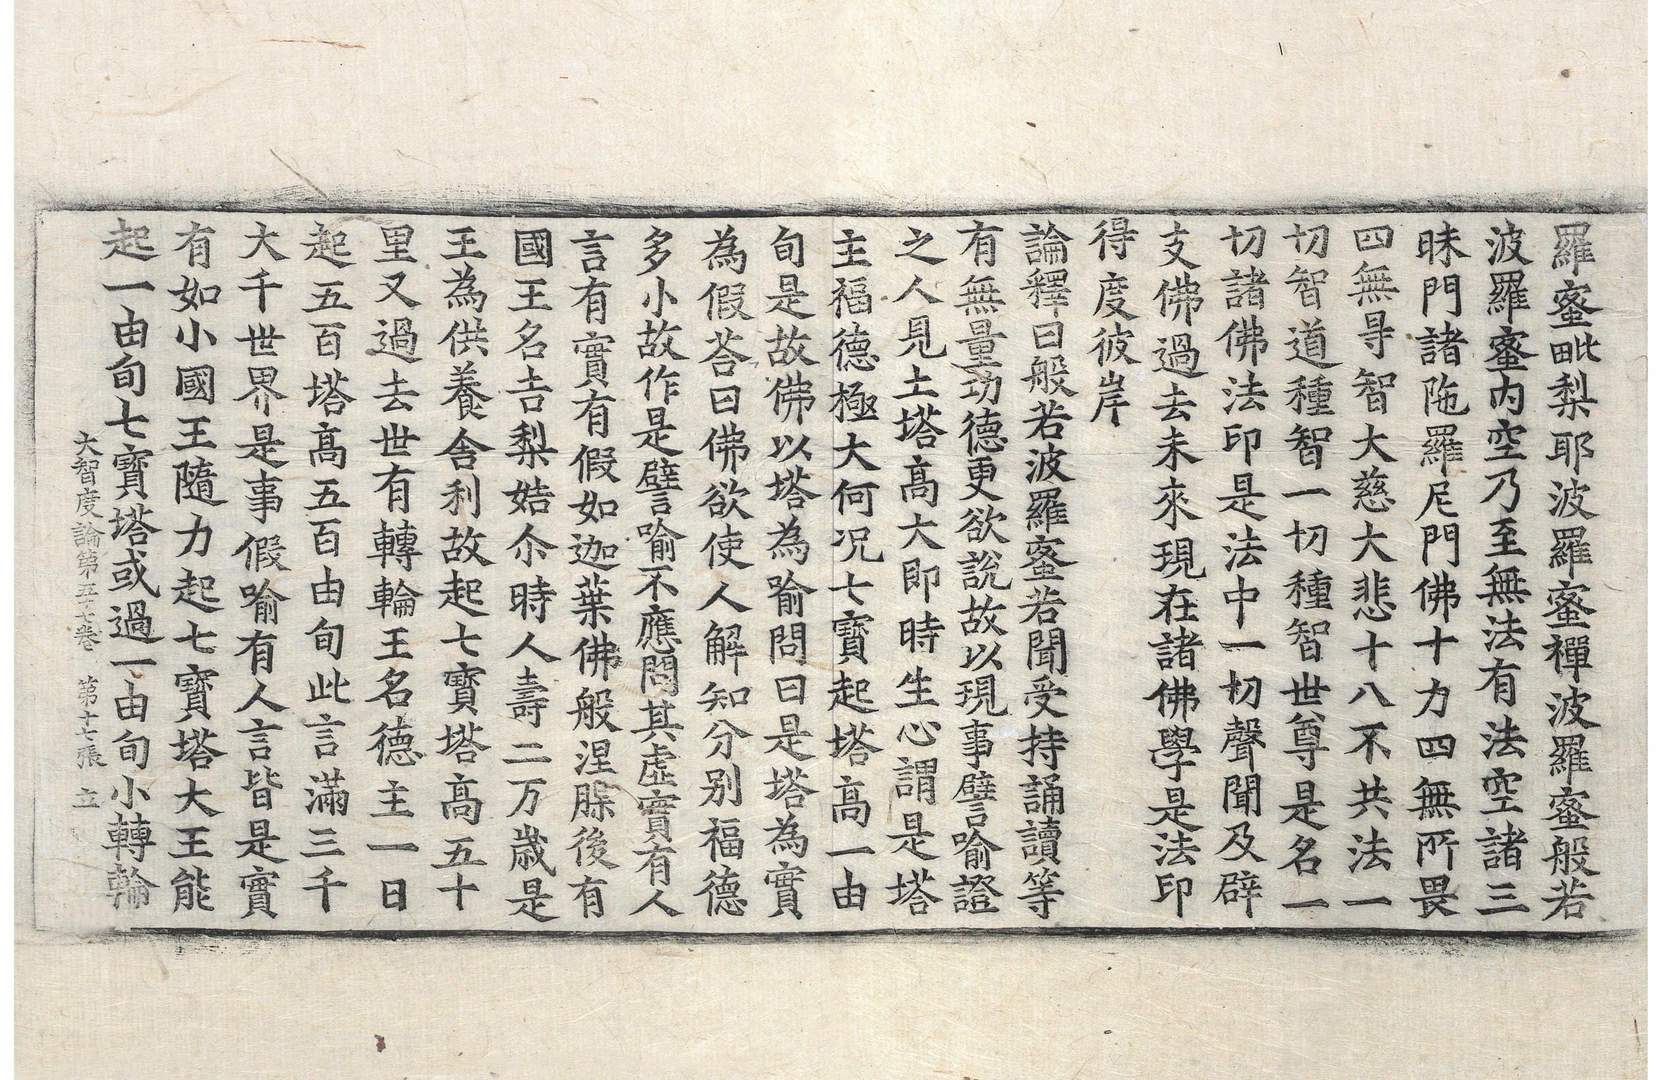 羅蜜毗梨耶波羅蜜禪波羅蜜般若
波羅蜜内空乃至無法有法空諸三
昧門諸陁羅尼門佛十力四無所畏
四無㝵智大慈大悲十八不共法一
切智道種智一切種智世尊是名一
切諸佛法印是法中一切聲聞及辟
支佛過去未來現在諸佛學是法印
得度彼岸
論釋曰般若波羅蜜若聞受持誦讀等
有無量功德更欲說故以現事譬喻證
之人見土塔高大即時生心謂是塔
主福德極大何况七寳起塔高一由
旬是故佛以塔為喻問曰是塔為實
為假荅曰佛欲使人解知分别福德
多小故作是譬喻不應問其虛實有人
言有實有假如迦葉佛般涅槃後有
國王名吉梨姞尒時人壽二万歲是
王為供養舍利故起七寳塔高五十
里又過去世有轉輪王名德主一日
起五百塔高五百由旬此言滿三千
大千世界是事假喻有人言皆是實
有如小國王隨力起七寳塔大王能
起一由旬七寳塔或過一由旬小轉輪
大智度論第五十七卷 第十七張 立